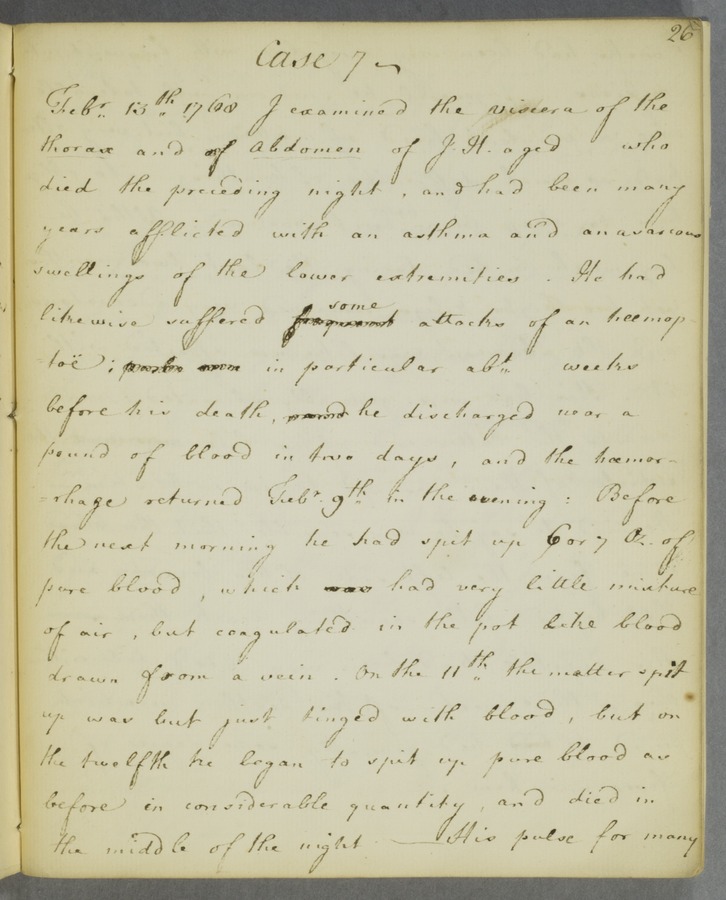 26
Case 7
Febr. 13th. 1768 I examined the viscera of the
thorax and of Abdomen of J. H. aged who
died the preceding night, and had been many
years afflicted with an asthma and anasarcous
swellings of the lower extremities. He had
likewise suffered frequent some attacks of an hæmop-
-toë; in particular abt. weeks
before his death, he discharged near a
pound of blood in two days, and the hæmor-
-rhage returned Febr. 9th. in the evening: Before
the next morning he had spit up 6 or 7 Oz. of
pure blood, which was had very little mixture
of air, but coagulated in the pot like blood
drawn from a vein. On the 11th. the matter spit
up was but just tinged with blood, but on
the twelfth he began to spit up pure blood as
before in considerable quantity, and died in
the middle of the night — His pulse for many